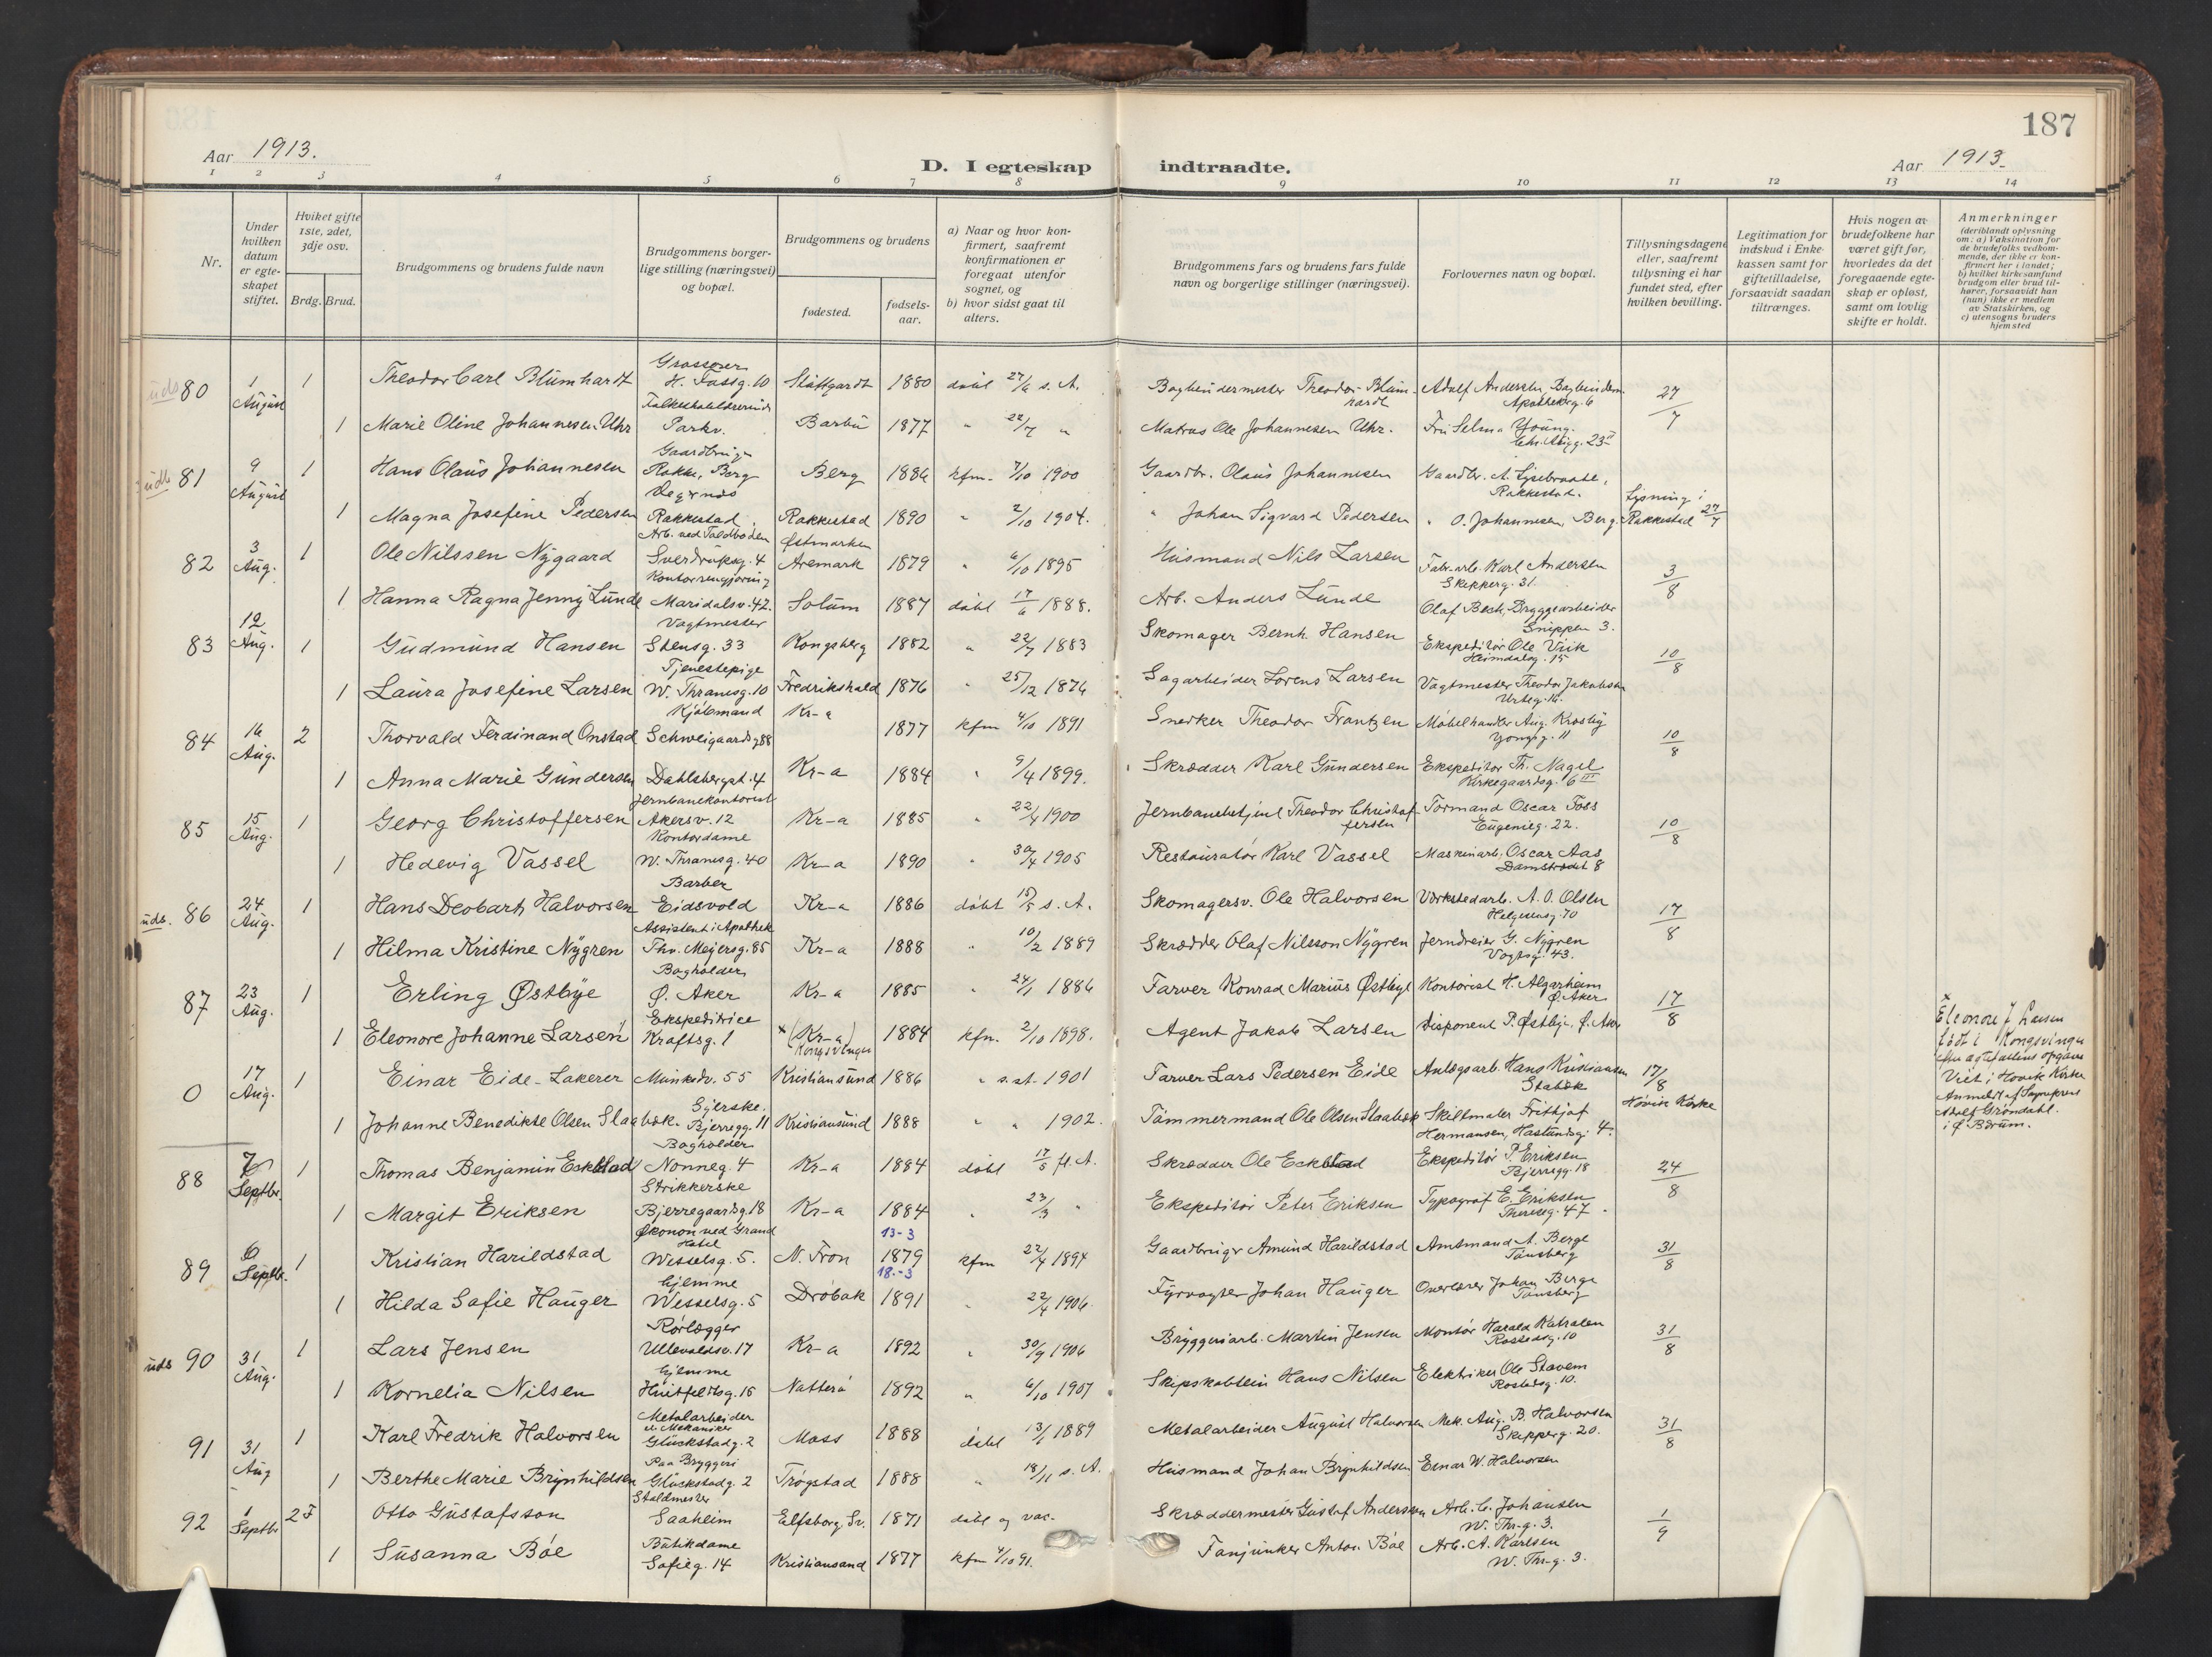 187
Aar 1913.
D. I egteskap indtraadte.
Aar 1913.
1 2 3 4 5 6 7 8 9 10 11 12 13 14
Nr.
Under hvilken datum er egteskapet stiftet.
Hvilket gifte 1ste, 2det, 3dje osv.
Brdg. Brud.
Brudgommens og brudens fulde navn
Brudgommens borgerlige stilling (næringsvei) og bopæl.
Brudgommens og brudens
fødested.
fødselsaar.
a) Naar og hvor konfirmert, saafremt konfirmationen er foregaat utenfor sognet, og
b) hvor sidst gaat til alters.
Brudgommens fars og brudens fars fulde navn og borgerlige stillinger (næringsvei).
Forlovernes navn og bopæl.
Tillysningsdagene eller, saafremt tillysning ei har fundet sted, efter hvilken bevilling.
Legitimation for indskud i Enkekassen samt for giftetilladelse, forsaavidt saadan tiltrænges.
Hvis nogen av brudefolkene har været gift før, hvorledes da det foregaaende egteskap er opløst, samt om lovlig skifte er holdt.
Anmerkninger
(deriblandt oplysning om: a) Vaksination for de brudefolks vedkommende, der ikke er konfirmert her i landet; b) hvilket kirkesamfund brudgom eller brud tilhører, forsaavidt han (hun) ikke er medlem av Statskirken, og c) utensogns bruders hjemsted
uds 80 1 August 1 Theodor Carl Blumhardt Grosserer H. Tostg. 10 Stüttgardt 1880 døbt 27/6 s. A. Bogbindermester Theodor Blumhardt Adolf Andersen, Bogbinderm. Apothekerg. 6 27/7
1 Marie Oline Johannesen Uhr Parkv. Barbu 1877 " 22/7 " Matros Ole Johannesen Uhr. Fru Selma Young. 23
81 9 August 1 Hans Olaus Johannesen Gaardbruger Rakke, Berg Berg 1886 kfm. 7/10 1900 Gaardbr. Olaus Johannesen Gaardbr. A. Lysebraate, Rakkestad.
1 Magna Josefine Pedersen Rakkestad Rakkestad 1890 " 2/10 1904. " Johan Sigvard Pedersen " O. Johannesen, Berg. Lysning i Rakkestad 27/7
82 3 Aug. 1 Ole Nilssen Nygaard Arb. ved Toldboden Sverdrupsg. 4 Østmarken Aremark 1879 " 6/10 1895 Husmand Nils Larsen Fabr.arb. Karl Andersen Skipperg. 31. 3/8
1 Hanna Ragna Jenny Lunde Kontorrengjøring Maridalsv. 42. Solum 1887 døbt 17/6 1888. Arb. Anders Lunde Olaf Bech, Bryggearbeider Snippen 3.
83 12 Aug. 1 Gudmund Hansen Vagtmester Stensg. 33 Kongsberg 1882 " 22/7 1883 Skomager Bernh. Hansen Ekspeditør Ole Vik Heimdalsg. 15 10/8
1 Laura Josefine Larsen Tjenestepige W. Thranesg. 10 Fredrikshald 1876 " 25/12 1876 Sagarbeider Lorens Larsen Vagtmester Theodor Jakobsen Urteg. 16.
84 16 Aug. 2 Thorvald Ferdinand Onstad Kjøbmand Schweigaardsg 88 Kr-a 1877 kfm 4/10 1891 Snedker Theodor Frantzen Møbelhandler Aug. Krosby Yongsg. 11 10/8
1 Anna Marie Gundersen Dahlsbergst. 4 Kr-a 1884 " 9/4 1899. Skrædder Karl Gundersen Ekspeditør Th. Nagel Kirkegaardsg. 6 III
85 15 Aug. 1 Georg Christoffersen Jernbanekontorist Akersv. 12 Kr-a 1885 " 22/4 1900 Jernbanebetjent Theodor Christoffersen Formand Oscar Foss Eugenieg. 22. 10/8
1 Hedevig Vassel Kontordame W. Thranesg. 40 Kr-a 1890 " 30/4 1905 Restauratør Karl Vassel Maskinarb. Oscar Aas Damstrædet 8
uds. 86 24 Aug. 1 Hans Deobarth Halvorsen Barber Eidsvold Kr-a 1886 døbt 15/8 s. A. Skomagersv. Ole Halvorsen Verkstedarb. A. O. Olsen Helgesensg. 70 17/8
1 Hilma Kristine Nygren Assistent i Apothek Thv. Meyersg. 85 Kr-a 1888 " 10/2 1889 Skrædder Olaf Nilsson Nygren Jerndreier G. Nygren Vogtsg. 43.
87 23 Aug. 1 Erling Østbye Bogholder Ø. Aker Kr-a 1885 " 24/1 1886 Farver Konrad Marius Østbye Kontorist H. Algarheim Ø. Aker 17/8
1 Eleonore Johanne Larsen Ekspeditrice Kraftsg. 1 × (Kr-a) Kongsvinger 1884 kfm. 2/10 1898. Agent Jakob Larsen Disponent P. Østbye, Ø. Aker
× Eleonore J Larsen født i Kongsvinger efter ægtefællens opgave
0 17 Aug. 1 Einar Eide-Lakerer Munkedv. 55 Kristiansund 1886 " s. st. 1901 Farver Lars Pedersen Eide Anlægsarb. Hans Kristiansen Stabæk 17/8
1 Johanne Benedikte Olsen Slaabak. Syerske. Bjerregg. 11 Kristiansund 1888 " " 1902. Tømmermand Ole Olsen Slaabak Skiltmaler Frithjof Hermansen, Høvik Kirke
Viet i Høvik Kirke Anmeldt af Sognepræst Adolf Grøndahl. i Ø Bærum.
88 7 Septbr. 1 Thomas Benjamin Eckblad Bogholder Nonneg. 4 Kr-a 1884 døbt 17/8 fl. A. Skrædder Ole Eckblad Ekspeditør P. Eriksen Bjerregg. 18 24/8
1 Margit Eriksen Strikkerske Bjerregaardsg. 18 Kr-a 1884 " 23/3 " Ekspeditør Peter Eriksen Typograf E. Eriksen Thereseg. 47.
89 6 Septbr. 1 Kristian Harildstad Økonom ved Grand Hotel Wesselsg. 5. N. Fron 13-3 1879 kfm 22/4 1894 Gaardbruger Amund Harildstad Amtmand A. Berge Tønsberg 31/8
1 Hilda Sofie Hauger Hjemme Wesselsg. 5 Drøbak 18.-3 1891 " 22/4 1906. Fyrvogter Johan Hauger Overlærer Johan Berge Tønsberg
uds 90 31 Aug. 1 Lars Jensen Rørlægger Ullevoldsv. 17 Kr-a 1892 " 30/9 1906 Bryggeriarb. Martin Jensen Montør Harald Rostedsg. 10 31/8
1 Kornelia Nilsen Hjemme Huitfeldtsg. 15 Nøtterø 1892 " 6/10 1907 Skipskaptein Hans Nilsen Elektriker Ole Stavem Rostedsg. 10.
91 31 Aug 1 Karl Fredrik Halvorsen Metalarbeider Mekaniker Glückstadg. 2 Moss 1888 døbt 13/1 1889 Metalarbeider August Halvorsen Mek. Aug. B. Halvorsen Skipperg. 20. 31/8
1 Berthe Marie Brynhildsen Paa Bryggeri Glückstadg. 2 Trøgstad 1888 " 18/11 s. A. Husmand Johan Brynhildsen Einar W. Halvorsen
92 1 Septbr 2 F Otto Gustafsson Staldmester Saaheim Elfsborg, Sv. 1871 døbt og vac. Skræddermester Gustaf Andersson Arb. C. Johansen W. Thr-g. 3. 1/9
1 Susanna Bøe Butikdame Sofieg. 14 Kristiansand 1877 kfm 4/10 91. Fanjunker Anton Bøe Arb. A. Karlsen W. Thr-g. 3.